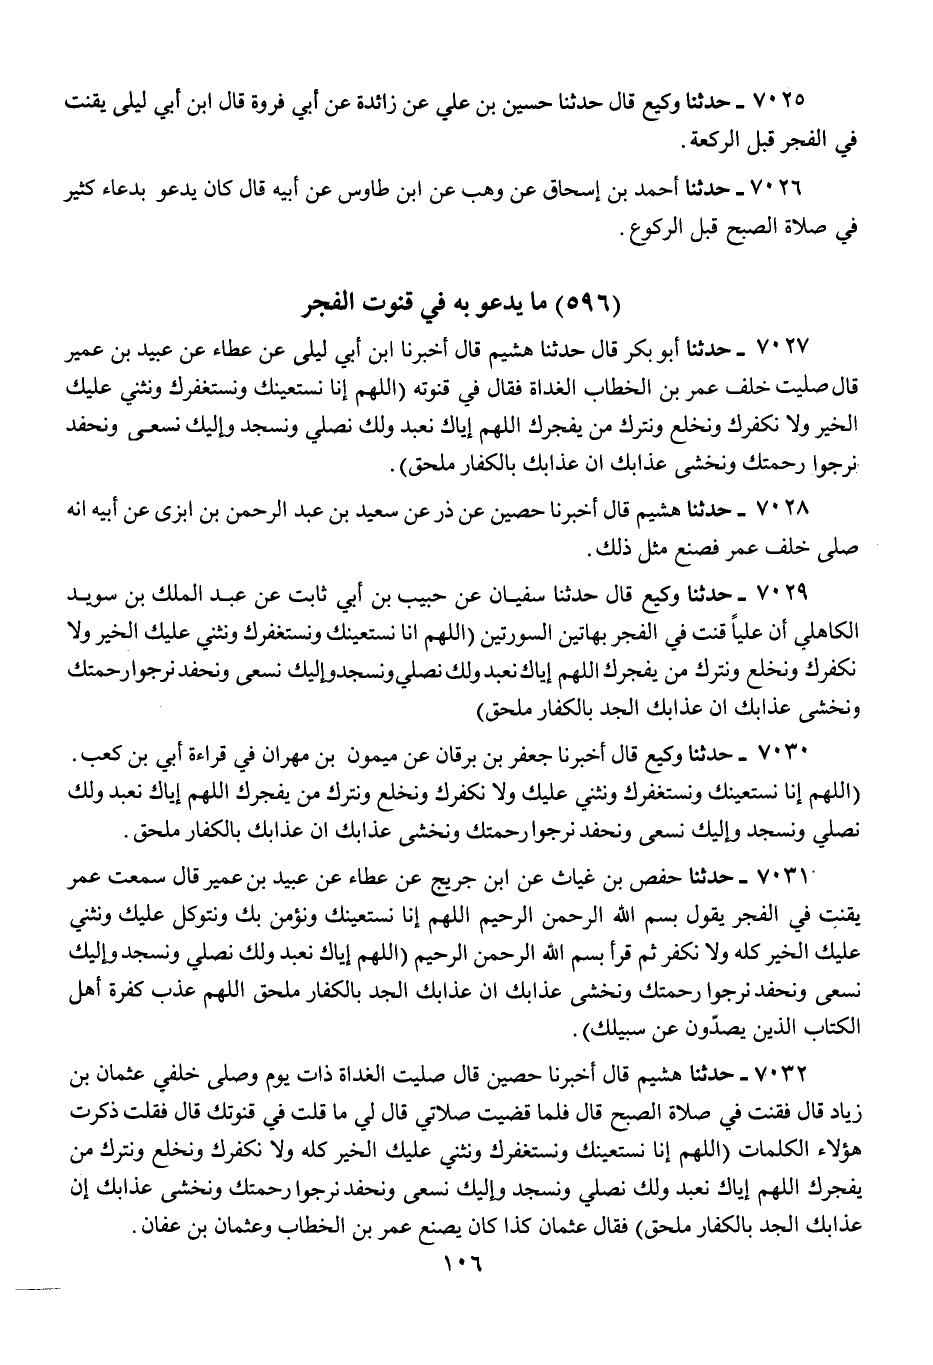 ٧٠٢٥ ـ حدثنا وكيع قال حدثنا حسين بن علي عن زائدة عن أبي فروة قال ابن أبي ليلى يقنت
في الفجر قبل الركعة .
٧٠٢٦ ـ حدثنا أحمد بن إسحاق عن وهب عن ابن طاوس عن أبيه قال كان يدعو بدعاء كثير
في صلاة الصبح قبل الركوع .
(٥٩٦) ما يدعو به في قنوت الفجر
٧٠٢٧ ـ حدثنا أبو بكر قال حدثنا هشيم قال أخبرنا ابن أبي ليلى عن عطاء عن عبيد بن عمير
قال صليت خلف عمر بن الخطاب الغداة فقال في قنوته (اللهم إنا نستعينك ونستغفرك ونثني عليك
الخير ولا نكفرك ونخلع ونترك من يفجرك اللهم إياك نعبد ولك نصلي ونسجد وإليك نسعى ونحفد
نرجوا رحمتك ونخشى عذابك ان عذابك بالكفار ملحق) .
٧٠٢٨ ـ حدثنا هشيم قال أخبرنا حصين عن ذر عن سعيد بن عبد الرحمن بن ابزى عن أبيه انه
صلى خلف عمر فصنع مثل ذلك .
٧٠٢٩ ـ حدثنا وكيع قال حدثنا سفيان عن حبيب بن أبي ثابت عن عبد الملك بن سويد
الكاهلي أن علياً قنت في الفجر بهاتين السورتين (اللهم انا نستعينك ونستغفرك ونثني عليك الخير ولا
نكفرك ونخلع ونترك من يفجرك اللهم إياك نعبد ولك نصلي ونسجد وإليك نسعى ونحفد نرجوا رحمتك
ونخشى عذابك ان عذابك الجد بالكفار ملحق)
٧٠٣٠ ـ حدثنا وكيع قال أخبرنا جعفر بن برقان عن ميمون بن مهران في قراءة أبي بن كعب .
(اللهم إنا نستعينك ونستغفرك ونثني عليك ولا نكفرك ونخلع ونترك من يفجرك اللهم إياك نعبد ولك
نصلي ونسجد وإليك نسعى ونحفد نرجوا رحمتك ونخشى عذابك ان عذابك بالكفار ملحق .
٧٠٣١ ـ حدثنا حفص بن غياث عن ابن جريج عن عطاء عن عبيد بن عمير قال سمعت عمر
يقنت في الفجر يقول بسم الله الرحمن الرحيم اللهم إنا نستعينك ونؤمن بك ونتوكل عليك ونثني
عليك الخير كله ولا نكفر ثم قرأ بسم الله الرحمن الرحيم (اللهم إياك نعبد ولك نصلي ونسجد وإليك
نسعى ونحفد نرجوا رحمتك ونخشى عذابك ان عذابك الجد بالكفار ملحق اللهم عذب كفرة أهل
الكتاب الذين يصدّون عن سبيلك) .
٧٠٣٢ ـ حدثنا هشيم قال أخبرنا حصين قال صليت الغداة ذات يوم وصلى خلفي عثمان بن
زياد قال فقنت في صلاة الصبح قال فلما قضيت صلاتي قال لي ما قلت في قنوتك قال فقلت ذكرت
هؤلاء الكلمات (اللهم إنا نستعينك ونستغفرك ونثني عليك الخير كله ولا نكفرك ونخلع ونترك من
يفجرك اللهم إياك نعبد ولك نصلي ونسجد وإليك نسعى ونحفد نرجوا رحمتك ونخشى عذابك إن
عذابك الجد بالكفار ملحق) فقال عثمان كذا كان يصنع عمر بن الخطاب وعثمان بن عفان .
١٠٦